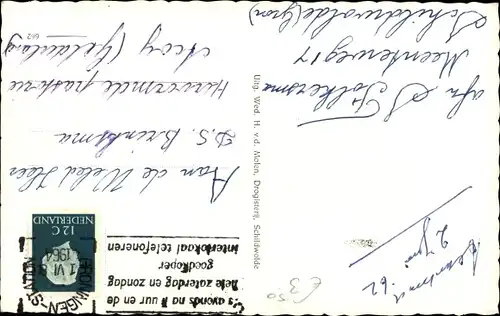 afz. S. Folkersma
Meenteweg 17
Schildwolde (Gron)
Uitg. Wed. H. v.d. Molen, Drogisterij, Schildwolde
Aan de Weled. Heer
D.S. Brinksma
Hervormde pastorie
(Gelderland)
662
NEDERLAND
12 C
GRONINGEN-STATION
1964
's avonds na 8 uur en de
hele zaterdag en zondag
goedkoper
interlokaal telefoneren
2 Juni
62
£ 3
50